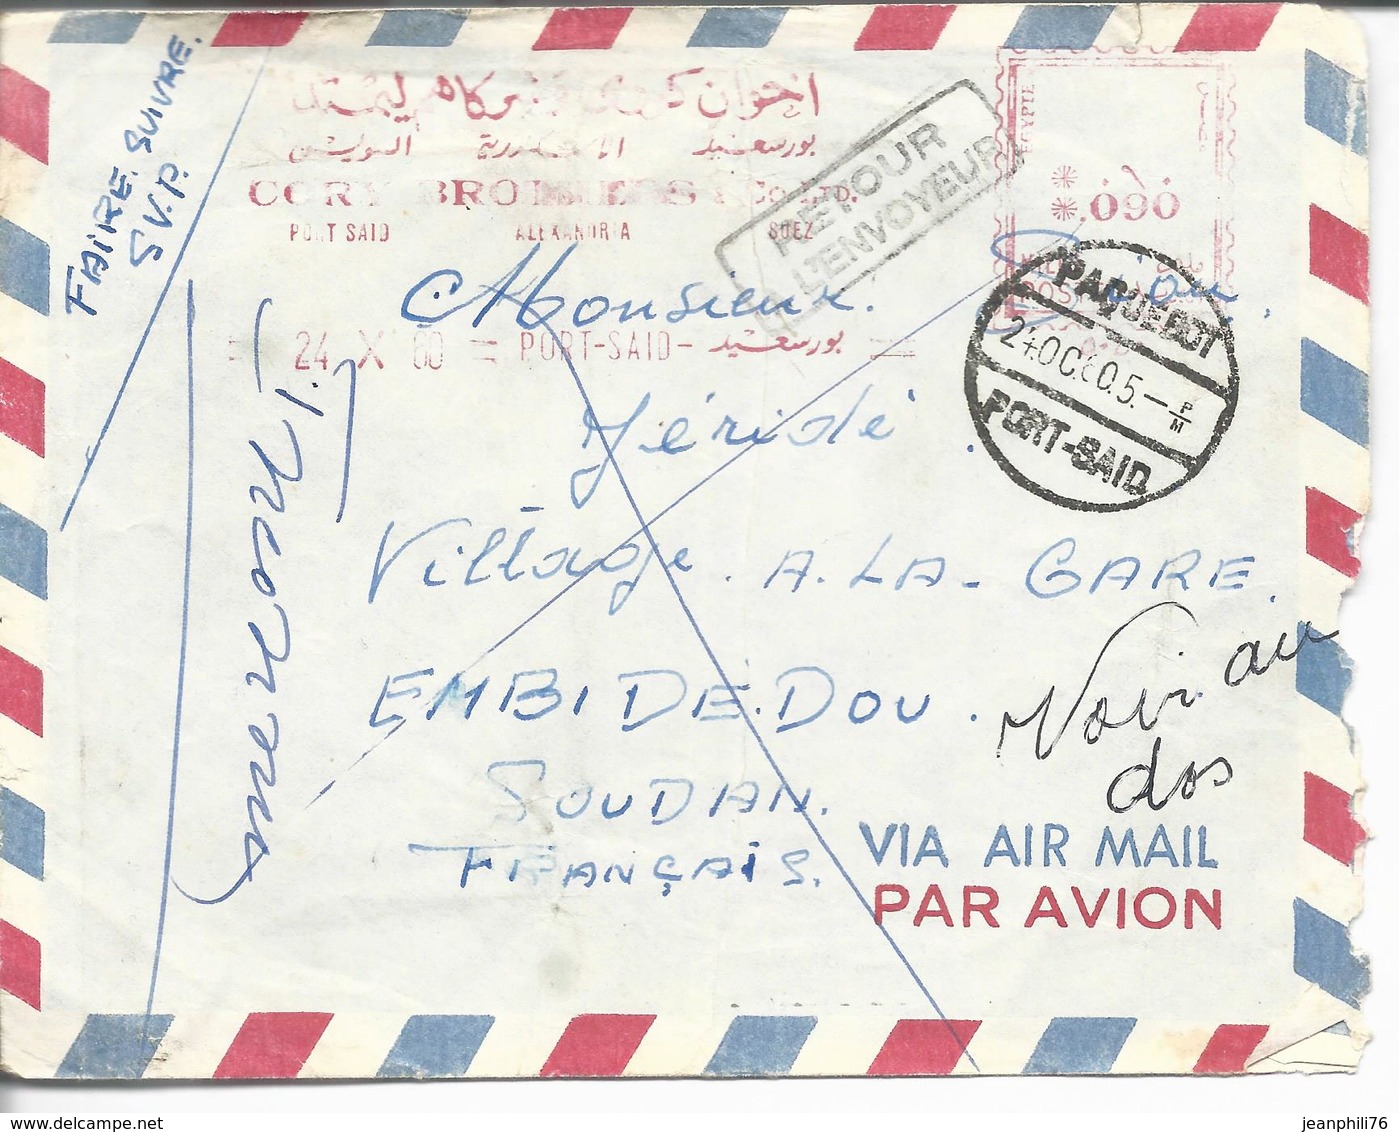 FAIRE. SUIVRE.
S.V.P.
اخوان
بورسعيد الاسكندرية السويس
CORY BROTHERS & CO. LTD.
PORT SAID ALEXANDRIA SUEZ
RETOUR
A L'ENVOYEUR
EGYPTE
.090
= 24 X 60 = PORT-SAID - بورسعيد =
PAQUEBOT
24 OC.60.5.- P/M
PORT-SAID
Monsieur.
Yéridé.
Village. A. LA - GARE.
EMBIDE.DOU.
SOUDAN.
FRANÇAIS.
inconnu
Voir au
dos
VIA AIR MAIL
PAR AVION
jeanphili76